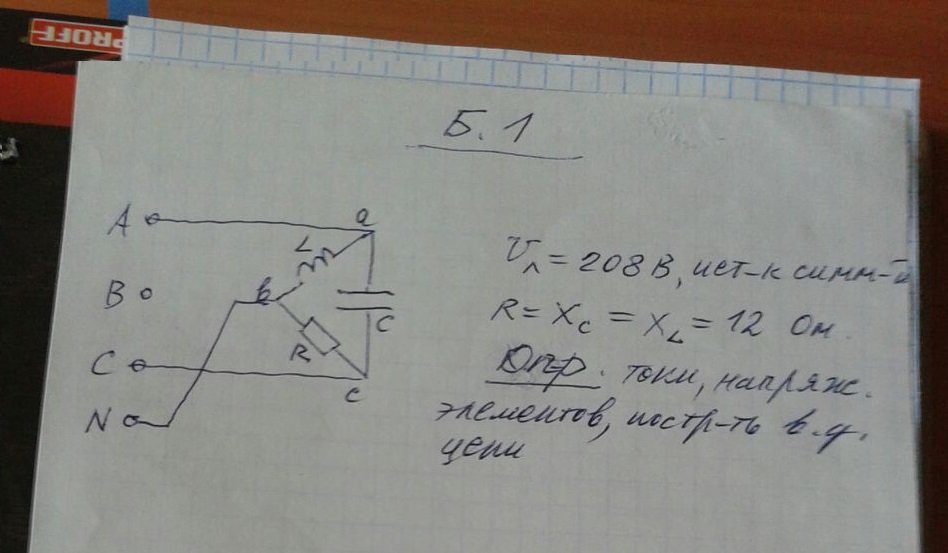 PROFF
Б. 1
A
a
L
B
b
C
R
C
c
N
Uл = 208 В, ист-к симм-й
R = XC = XL = 12 Ом.
Опр. токи, напряж.
элементов, постр-ть в.д.
цепи